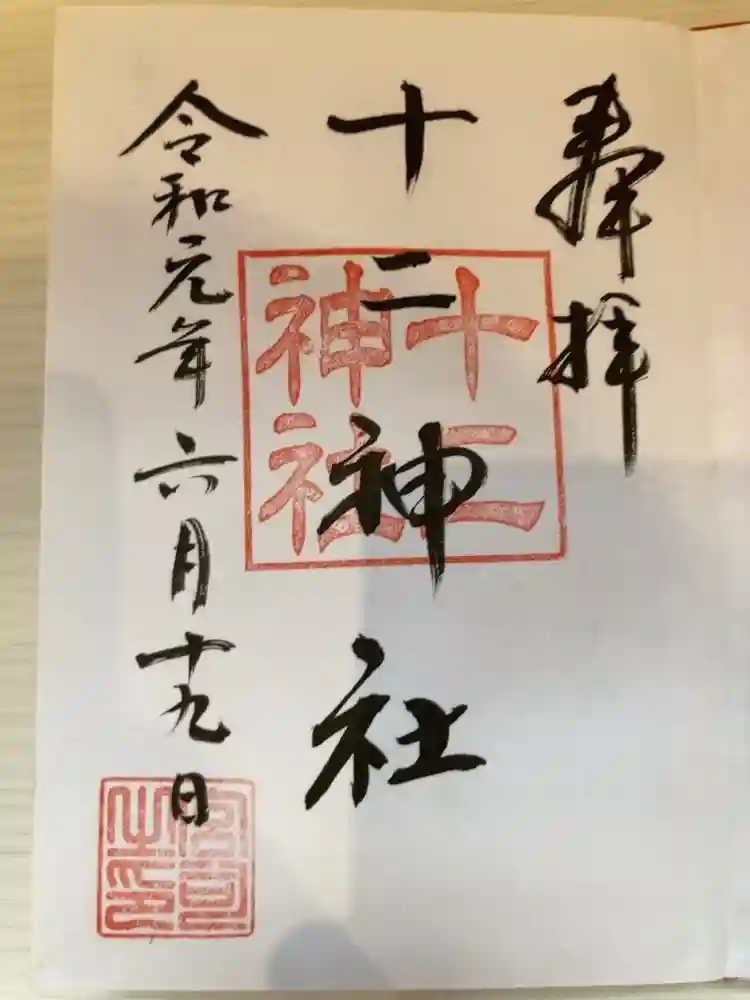 奉拝
十二神社
十二
神社
令和元年六月十九日
宮司
之印